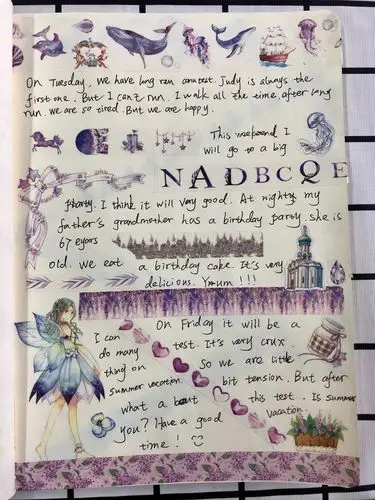 On Tuesday, we have long run contest. Judy is always the
first one. But I can't run. I walk all the time, after long
run. we are so tired. But we are happy.
This weekend I
will go to a big
NADBCQE
party. I think it will very good. At nighty my
father's grandmother has a birthday party. she is
67 eyors
old. we eat a birthday cake. It's very
delicious. Ymum !!!
On Friday it will be a
test. It's very crux
So we are little
bit tension. But after
this test. Is summer
vacation.
I can
do many
thing on
summer vacation.
what a bout
you? Have a good
time!